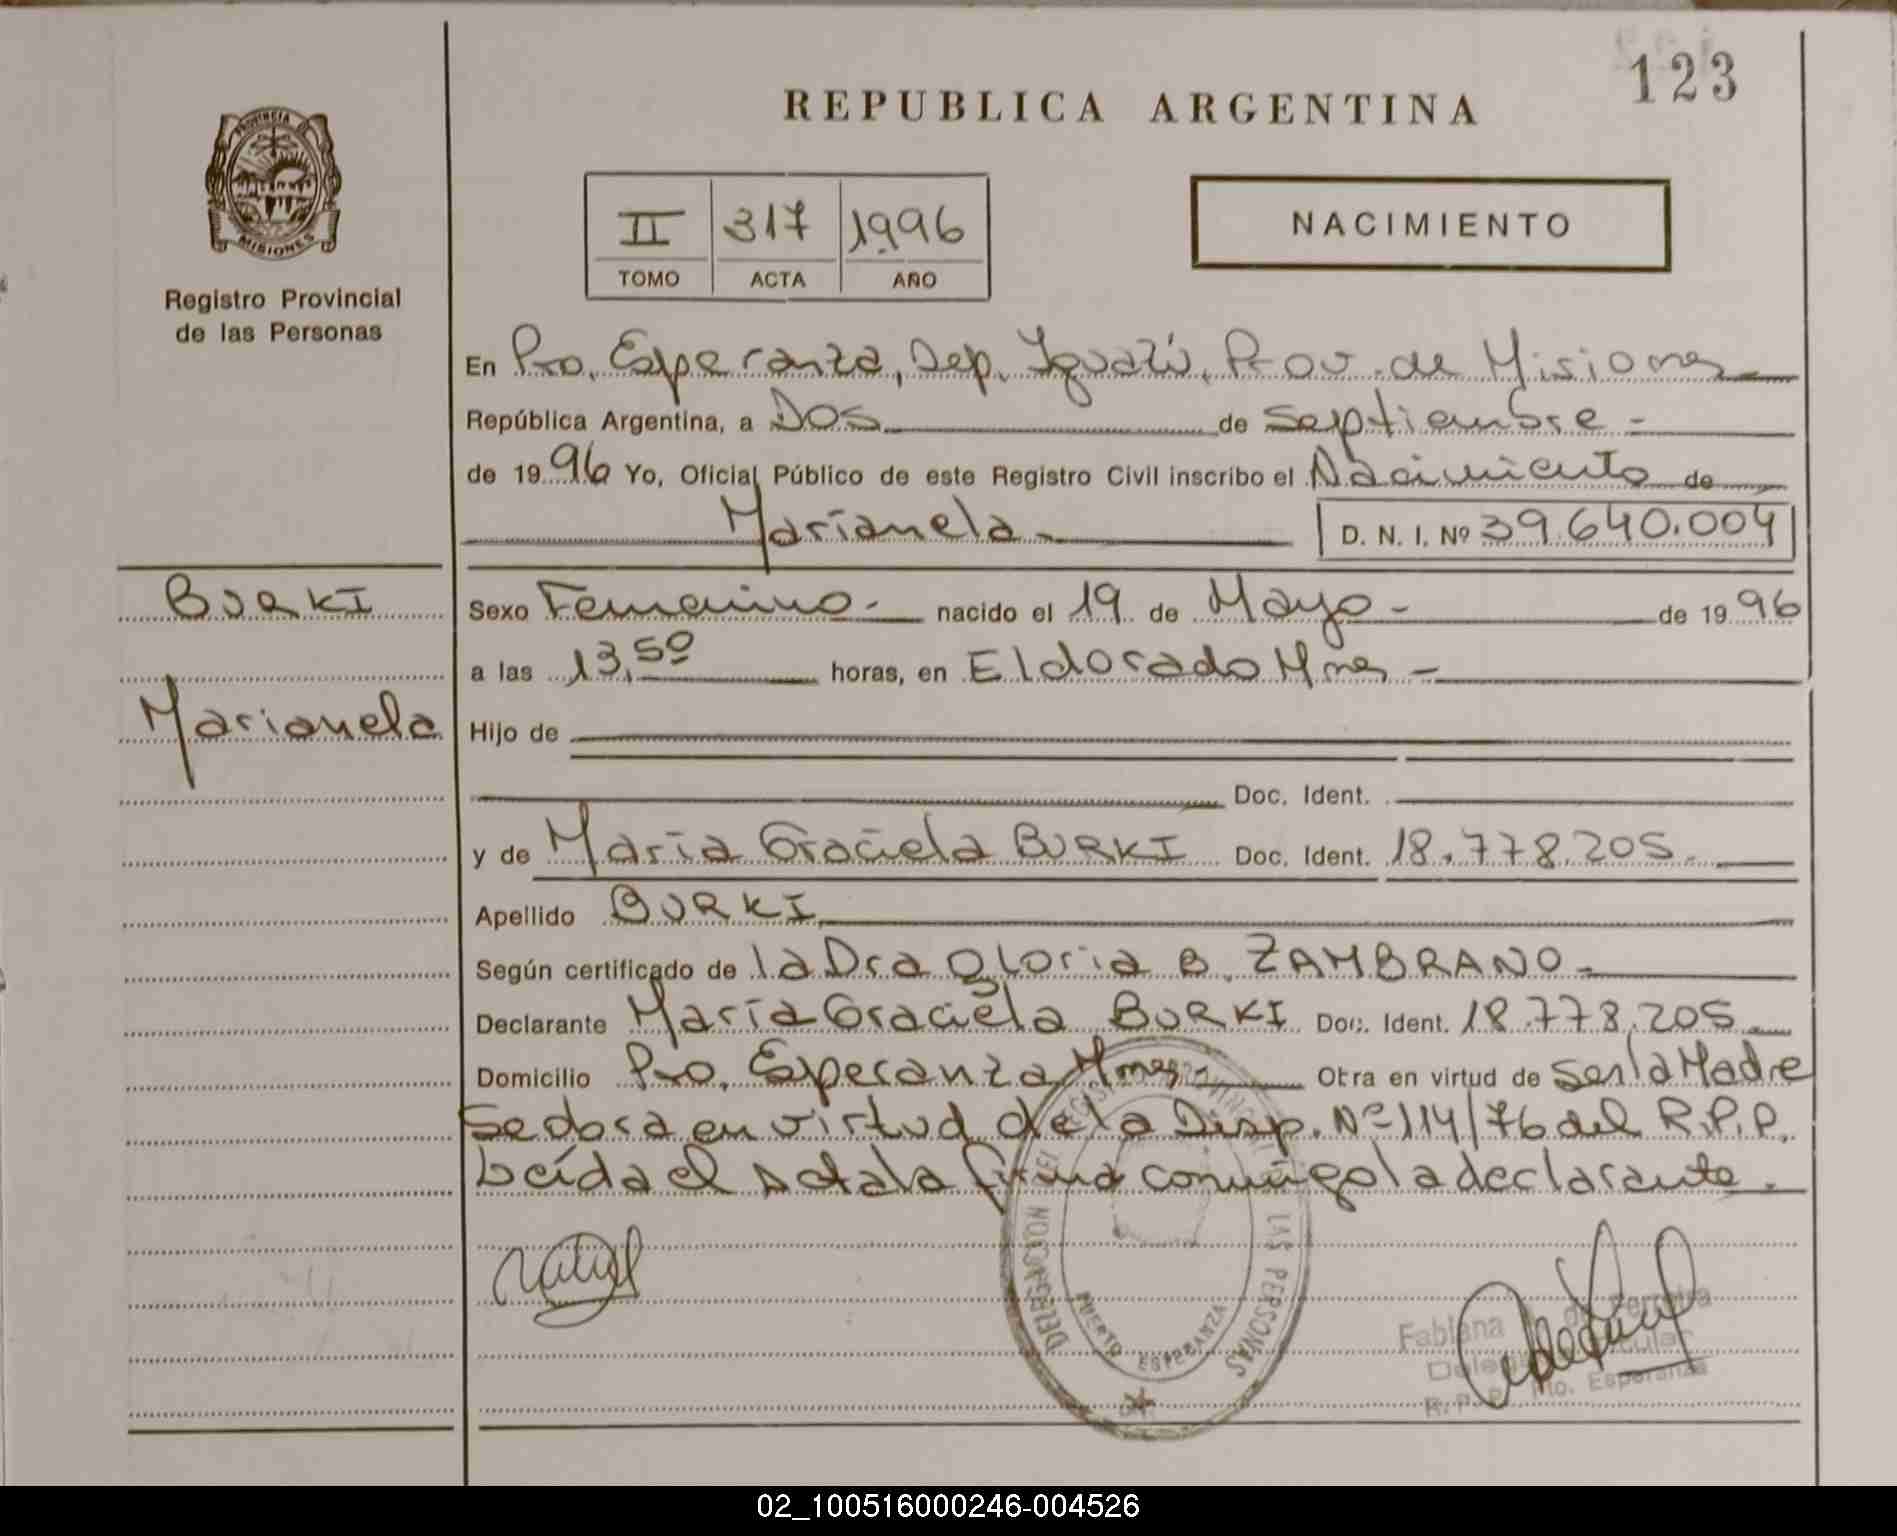 123
REPUBLICA ARGENTINA
PROVINCIA DE
MISIONES
Registro Provincial
de las Personas
II 317 1996
TOMO ACTA AÑO
NACIMIENTO
En Pto. Esperanza, Dep. Iguazú, Prov. de Misiones
República Argentina, a Dos de Septiembre
de 1996 Yo, Oficial Público de este Registro Civil inscribo el Nacimiento de
Marianela
D. N. I. Nº 39.640.004
BURKI
Marianela
Sexo Femenino nacido el 19 de Mayo de 1996
a las 13,50 horas, en Eldorado Mnes
Hijo de
Doc. Ident.
y de María Graciela BURKI Doc. Ident. 18.778.205
Apellido BURKI
Según certificado de la Dra Gloria B. ZAMBRANO
Declarante María Graciela BURKI Doc. Ident. 18.778.205
Domicilio Pto. Esperanza Mnes Otra en virtud de Ser la Madre
Se dora en virtud de la Disp. Nº 114/76 del R.P.P.
Leída el Acta la firma conmigo la declarante.
DELEGACION DEL REGISTRO PROVINCIAL DE LAS PERSONAS
PUERTO ESPERANZA
Fabiana de Ferreira
Titular
R. P. P. Pto. Esperanza
02_100516000246-004526